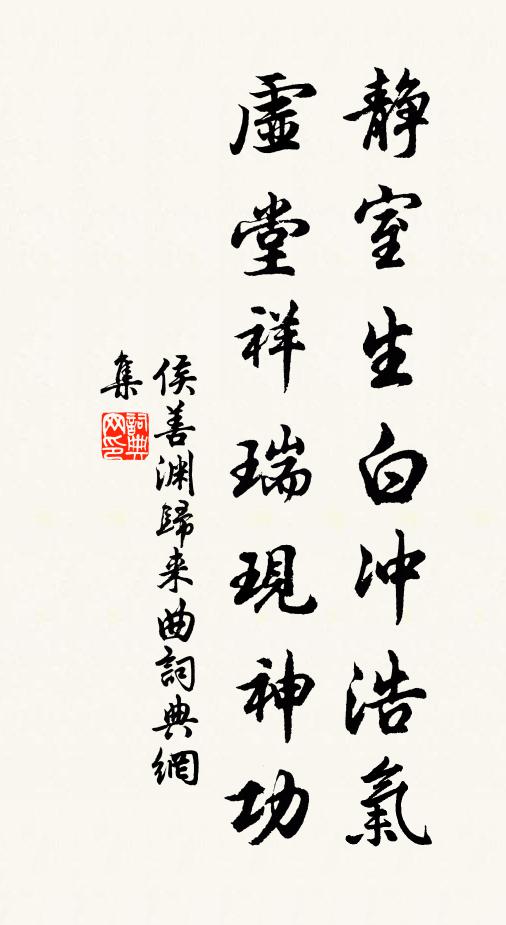 静室生白冲浩氣
虛堂祥瑞現神功
侯善渊歸来曲詞典網
集
詞典網印